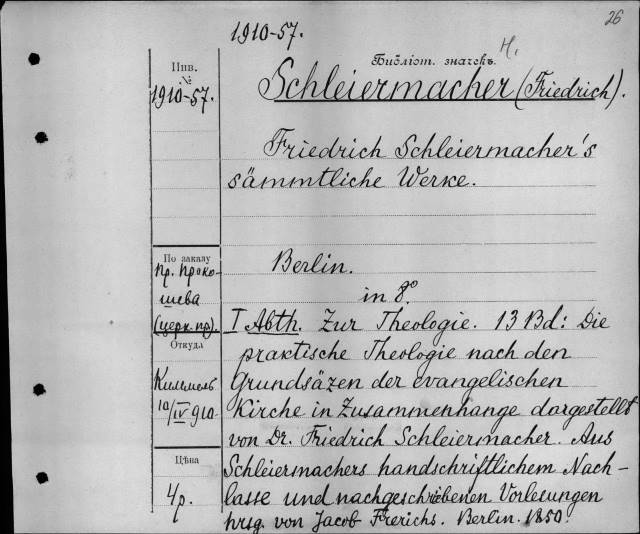 26
1910-57.
Инв.
№
1910-57.
Библіот. значекъ
Н.
Schleiermacher (Friedrich).
Friedrich Schleiermacher's
sämmtliche Werke.
По заказу
Пр. Проко-
шева
(церк. пр).
Откуда
Киммель
10/IV 910
Цѣна
4р.
Berlin.
in 8°
I Abth. Zur Theologie. 13 Bd: Die
praktische Theologie nach den
Grundsäzen der evangelischen
Kirche in Zusammenhange dargestellt
von Dr. Friedrich Schleiermacher. Aus
Schleiermachers handschriftlichem Nach-
lasse und nachgeschriebenen Vorlesungen
hrsg. von Jacob Frerichs. Berlin. 1850.